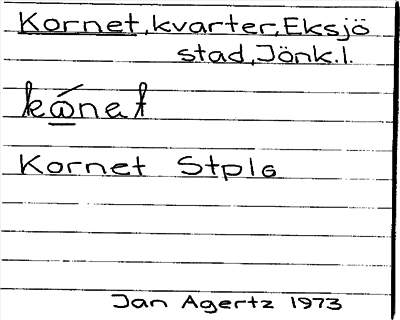 Kornet, kvarter, Eksjö
stad, Jönk.l.
Kornet Stplo
Jan Agertz 1973